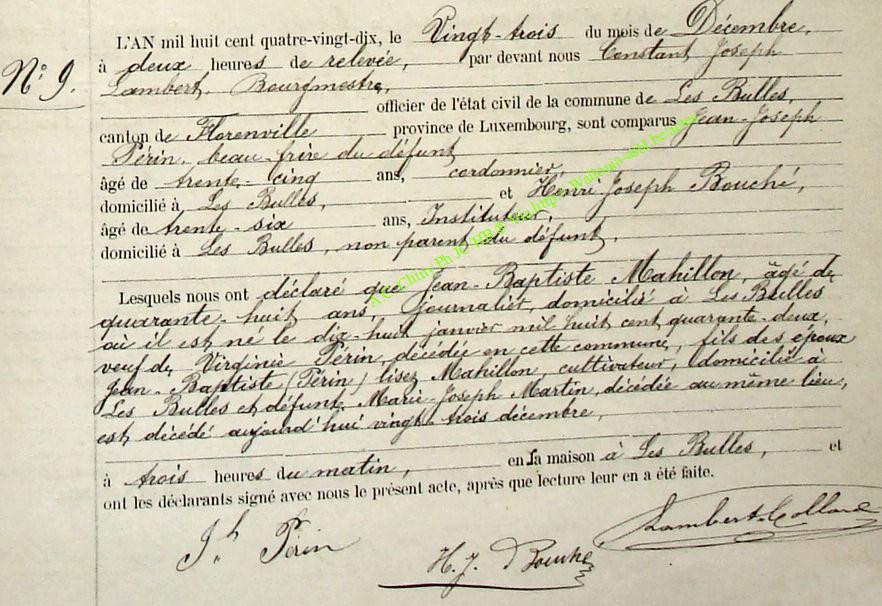 L'AN mil huit cent quatre-vingt-dix, le Vingt-trois du mois de Décembre,
à deux heures de relevée, par devant nous Constant Joseph
N° 9.
Lambert, Bourgmestre,
officier de l'état civil de la commune de Les Bulles,
canton de Florenville province de Luxembourg, sont comparus Jean-Joseph
Périn, beau-frire du défunt
âgé de trente-cinq ans, cordonnier,
domicilié à Les Bulles, et Henri Joseph Bouché,
âgé de trente-six ans, Instituteur,
domicilié à Les Bulles, non parent du défunt,
Lesquels nous ont déclaré que Jean-Baptiste Mahillon, âgé de
quarante-huit ans, journalier, domicilié à Les Bulles
où il est né le dix-huit janvier mil huit cent quarante-deux,
veuf de Virginie Périn, décédée en cette commune, fils des époux
Jean-Baptiste (Périn) lisez Mahillon, cultivateur, domicilié à
Les Bulles et défunte Marie-Joseph Martin, décédée au même lieu,
est décédé aujourd'hui vingt-trois décembre,
à trois heures du matin, en sa maison à Les Bulles, et
ont les déclarants signé avec nous le présent acte, après que lecture leur en a été faite.
Jh Périn
H. J. Bouché
Lambert-Collard